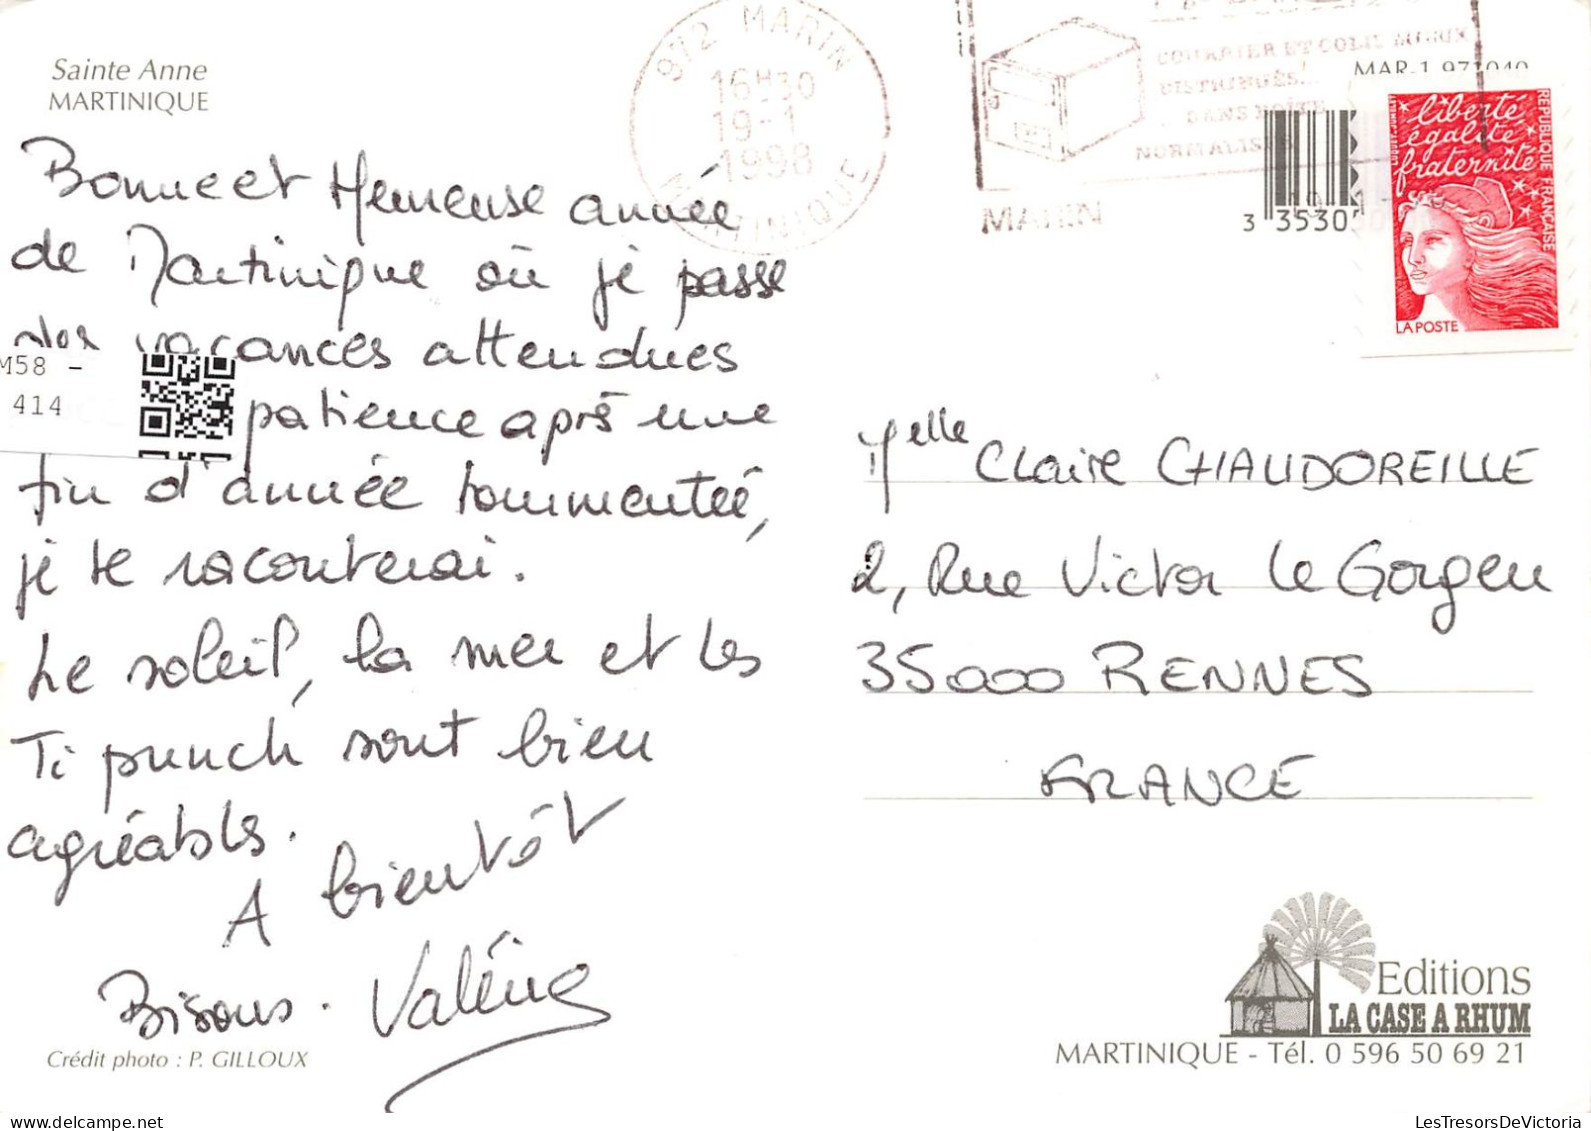 Sainte Anne
MARTINIQUE
972 MARIN
16H30
19-1
1998
MARTINIQUE
COURRIER ET COLIS MIEUX
DISTRIBUÉS...
... DANS BOÎTE
NORMALISÉE
MARIN
MAR-1 971040
3 35300
liberté
égalité
fraternité
RÉPUBLIQUE FRANÇAISE
LA POSTE
Bonne et Heureuse année
de Martinique où je passe
vacances attendues
M58 -
414
patience après une
fin d'année tourmentée,
je te raconterai.
Le soleil, la mer et les
Ti punch sont bien
agréables.
A bientôt
Bisous. Valérie
Melle Claire CHAUDOREILLE
2, Rue Victor le Gorgeu
35000 RENNES
FRANCE
Crédit photo : P. GILLOUX
Editions
LA CASE A RHUM
MARTINIQUE - Tél. 0 596 50 69 21
LesTresorsDeVictoria